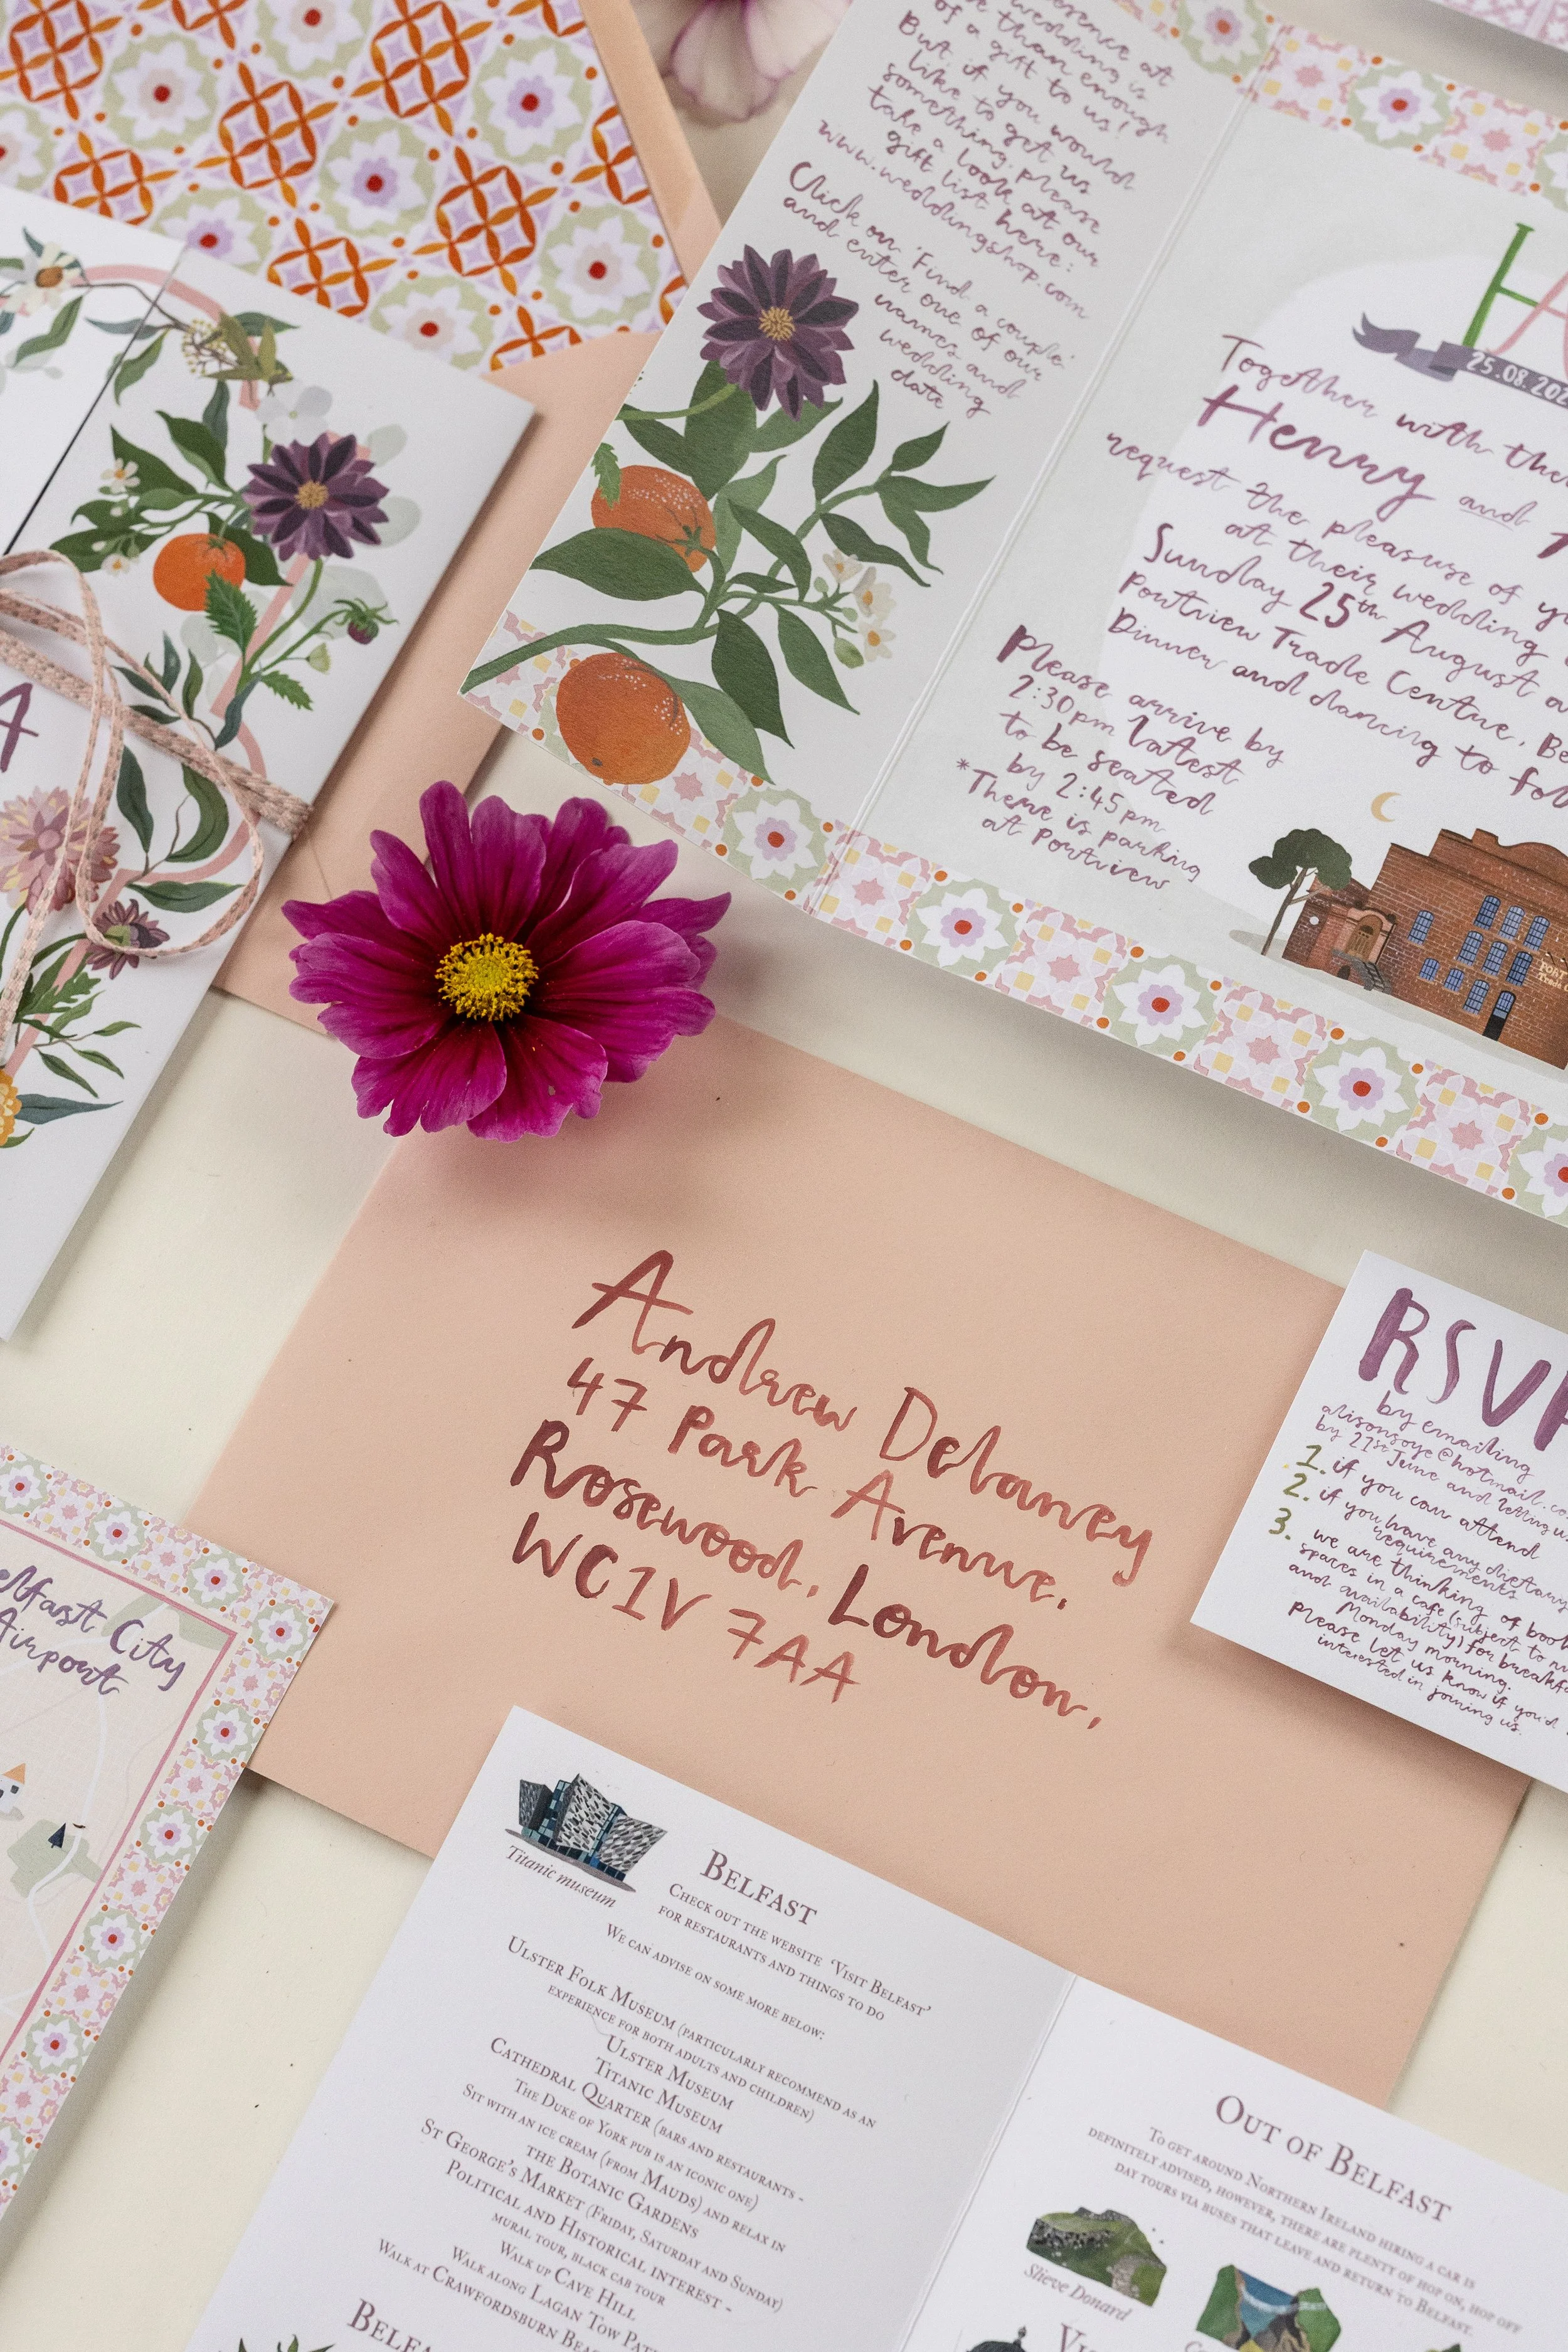 presence at
wedding is
than enough
of a gift to us!
But if you would
like to get us
something, please
take a look at our
gift list here:
www.weddingshop.com
Click on 'Find a couple'
and enter one of our
names and
wedding
date
HA
25.08.202
Together with
Henry and
request the pleasure of
at their wedding
Sunday 25th August
Portview Trade Centre,
Dinner and dancing to
Please arrive by
2:30pm latest
to be seated
by 2:45pm
*There is parking
at Portview
A
Andrew Delaney
47 Park Avenue,
Rosewood, London,
WC1V 7AA
RSVP
by emailing
alisonsoye@hotmail.co
by 21st June and letting us
1. if you can attend
2. if you have any dietary
requirements
3. we are thinking of
spaces in a cafe (subject to
and availability) for
Monday morning.
Please let us know if you'd
interested in joining us.
City
Airport
Titanic museum
BELFAST
CHECK OUT THE WEBSITE 'VISIT BELFAST'
FOR RESTAURANTS AND THINGS TO DO
WE CAN ADVISE ON SOME MORE BELOW:
ULSTER FOLK MUSEUM (PARTICULARLY RECOMMEND AS AN
EXPERIENCE FOR BOTH ADULTS AND CHILDREN)
ULSTER MUSEUM
TITANIC MUSEUM
CATHEDRAL QUARTER (BARS AND RESTAURANTS -
THE DUKE OF YORK PUB IS AN ICONIC ONE)
SIT WITH AN ICE CREAM (FROM MAUDS) AND RELAX IN
THE BOTANIC GARDENS
ST GEORGE'S MARKET (FRIDAY, SATURDAY AND SUNDAY)
POLITICAL AND HISTORICAL INTEREST -
MURAL TOUR, BLACK CAB TOUR
WALK UP CAVE HILL
WALK ALONG LAGAN TOW
WALK AT CRAWFORDSBURN
OUT OF BELFAST
TO GET AROUND NORTHERN IRELAND HIRING A CAR IS
DEFINITELY ADVISED, HOWEVER, THERE ARE PLENTY OF HOP ON, HOP OFF
DAY TOURS VIA BUSES THAT LEAVE AND RETURN TO BELFAST.
Slieve Donard